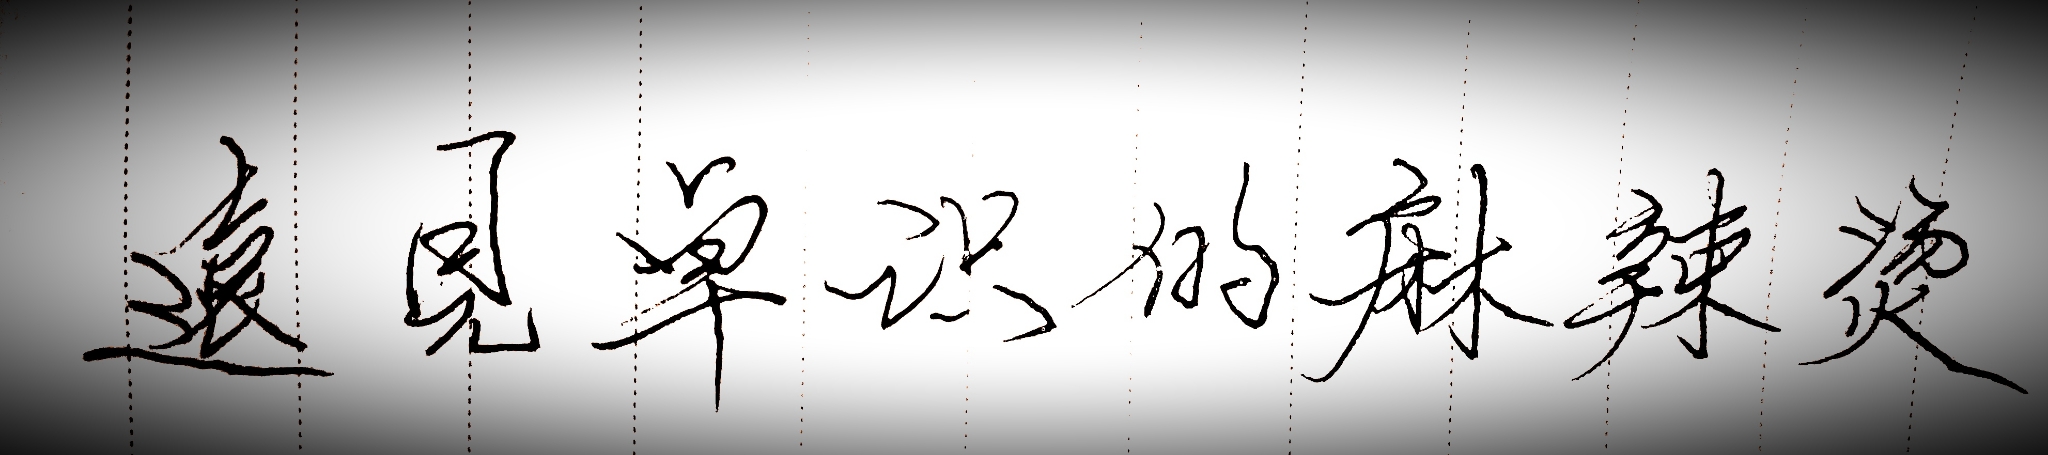 遠見卓识的麻辣烫